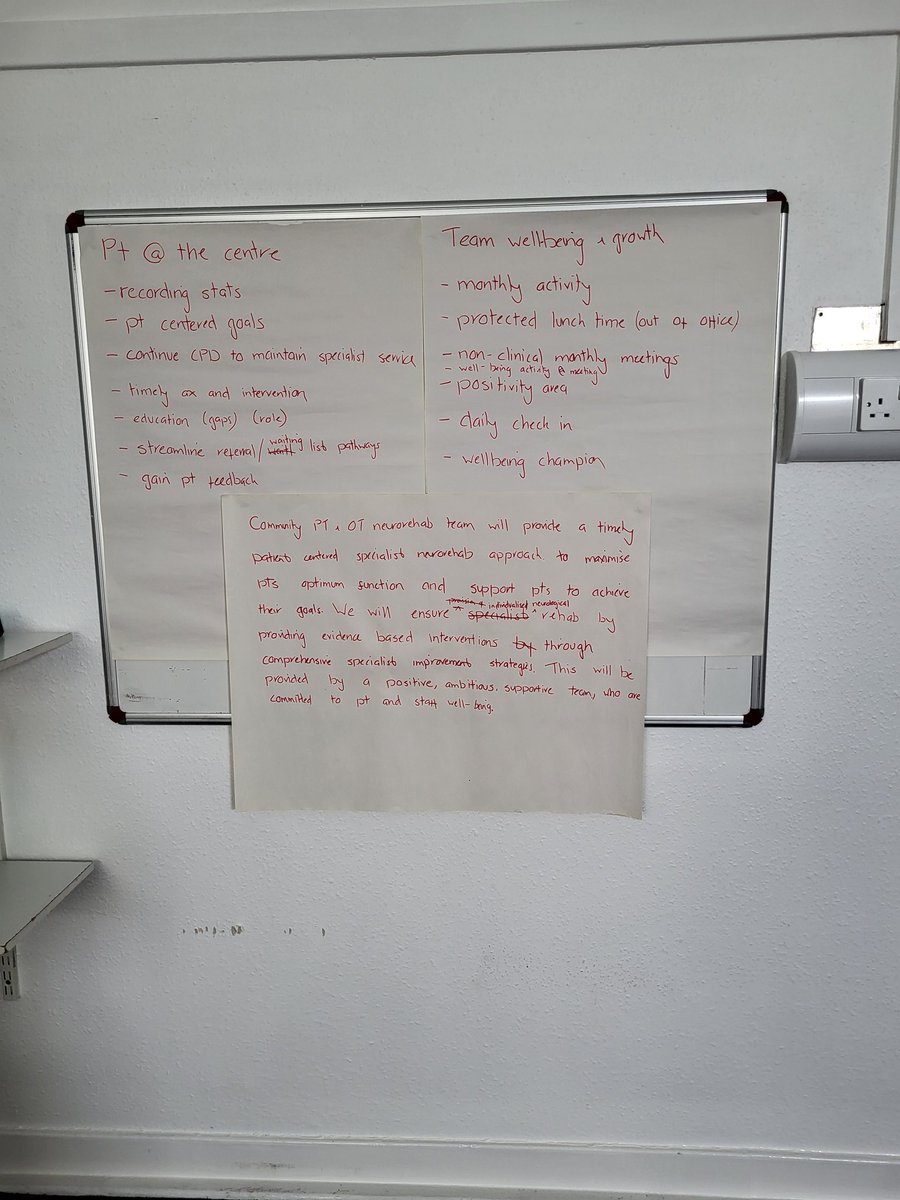 Pt @ the centre
- recording stats
- pt centered goals
- continue CPD to maintain specialist service
- timely ax and intervention
- education (gaps) (role)
- streamline referral/ waiting list pathways
- gain pt feedback
Team wellbeing & growth
- monthly activity
- protected lunch time (out of office)
- non-clinical monthly meetings
- well-being activity @ meeting
- positivity area
- daily check in
- wellbeing champion
Community PT & OT neurorehab team will provide a timely
patient centered specialist neurorehab approach to maximise
pts optimum function and support pts to achieve
their goals. We will ensure individualised neurological specialist rehab by
providing evidence based interventions by through
comprehensive specialist improvement strategies. This will be
provided by a positive, ambitious, supportive team, who are
committed to pt and staff well-being.